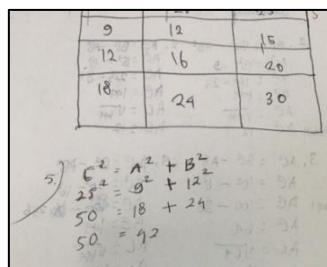 9 12 15
12 16 20
18 24 30
5. C² = A² + B²
25² = 9² + 12²
50 = 18 + 24
50 = 42